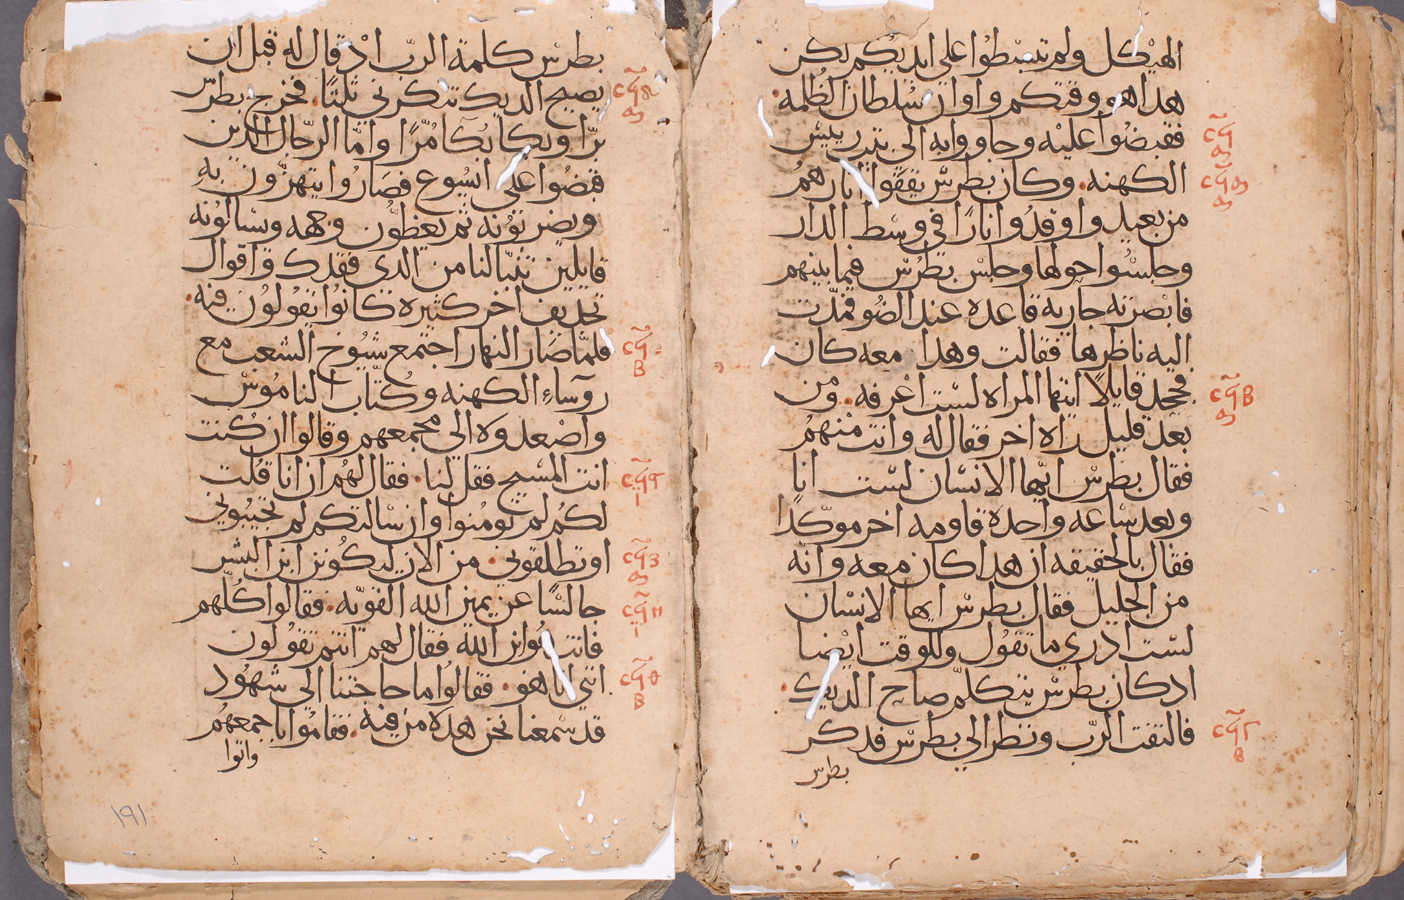 الهيكل ولم تبسطوا على ايديكم لكن
هدا هو وقتكم واوان سُلطان الظلمه.
فقبضُوا عليْه وجاووا به الى بيت رييسْ
الكهنه. وكان بطرسْ يقفوا اثارهمُ
من بعيد واوقدُوا نارًا في وسْط الدار
وجلسْوا حولها وجلسْ بطرُسْ فيما بينهم
فابْصرته جاريه قاعده عند الضُو فميّزت
اليه ناظرها فقالت وهدا معه كان
فجحد قايلاً ايتها المراه لسْت اعْرفه. ومن
بعد قليل راه اخر فقال له وانت منْهمُ
فقال بطرسْ ايّها الانسْان لسْت انا
وبعد سْاعه واحده قاومه اخر موكّدا
فقال بالحقيقه ان هدا كان معه وانّه
من الجليل فقال بطرسْ ايها الانسْان
لسْت ادري ما تقوُل وللوقت ايْضا
ادكان بطرسْ يتكلّم صاح الديك.
فالتفت الرّب ونظر الى بطرسْ فدكر
بطرس
بطرسْ كلمة الربّ ادْ قال له قبل ان
يصيح الديك تنكرني ثلثًا. فخرج بطرسْ
برّا وبكا بُكآ مُرًّا وامّا الرجال الدين
قبضُوا على ايسُوع فصَارُوا يتهزّون بهِ
ويضربُوُنه ثم يغطّون وجهه ويسْالوُنه
قايلين تنبّا لنا من الدي فقدك واقوال
تجديف اخر كثيره كانُوا يقوُلوُن فيه.
فلمّا صَار النهار اجتمع شيُوخ الشعب مع
روسَاء الكهنه وكُتّاب الناموُسْ
واصْعدوه الى مجمعهم وقالوا ان كنت
انت المسْيح فقل لنا. فقال لهمُ ان انا قلت
لكم لم تومُنوا وان سْالتكم لم تجيبُوني
او تطلقوني. من الان ليكُونن ابن البشر
جالسًْا عن يمين الله القويّه. فقالوا كُلّهم
فانت هُو ابن الله فقال لهم انتم تقوُلون
انّي انا هُو. فقالُوا ما حاجتنا الى شهُود
قد سْمعنا نحن هده من فيه. فقامُوا باجمعهُم
واتوا
١٩١